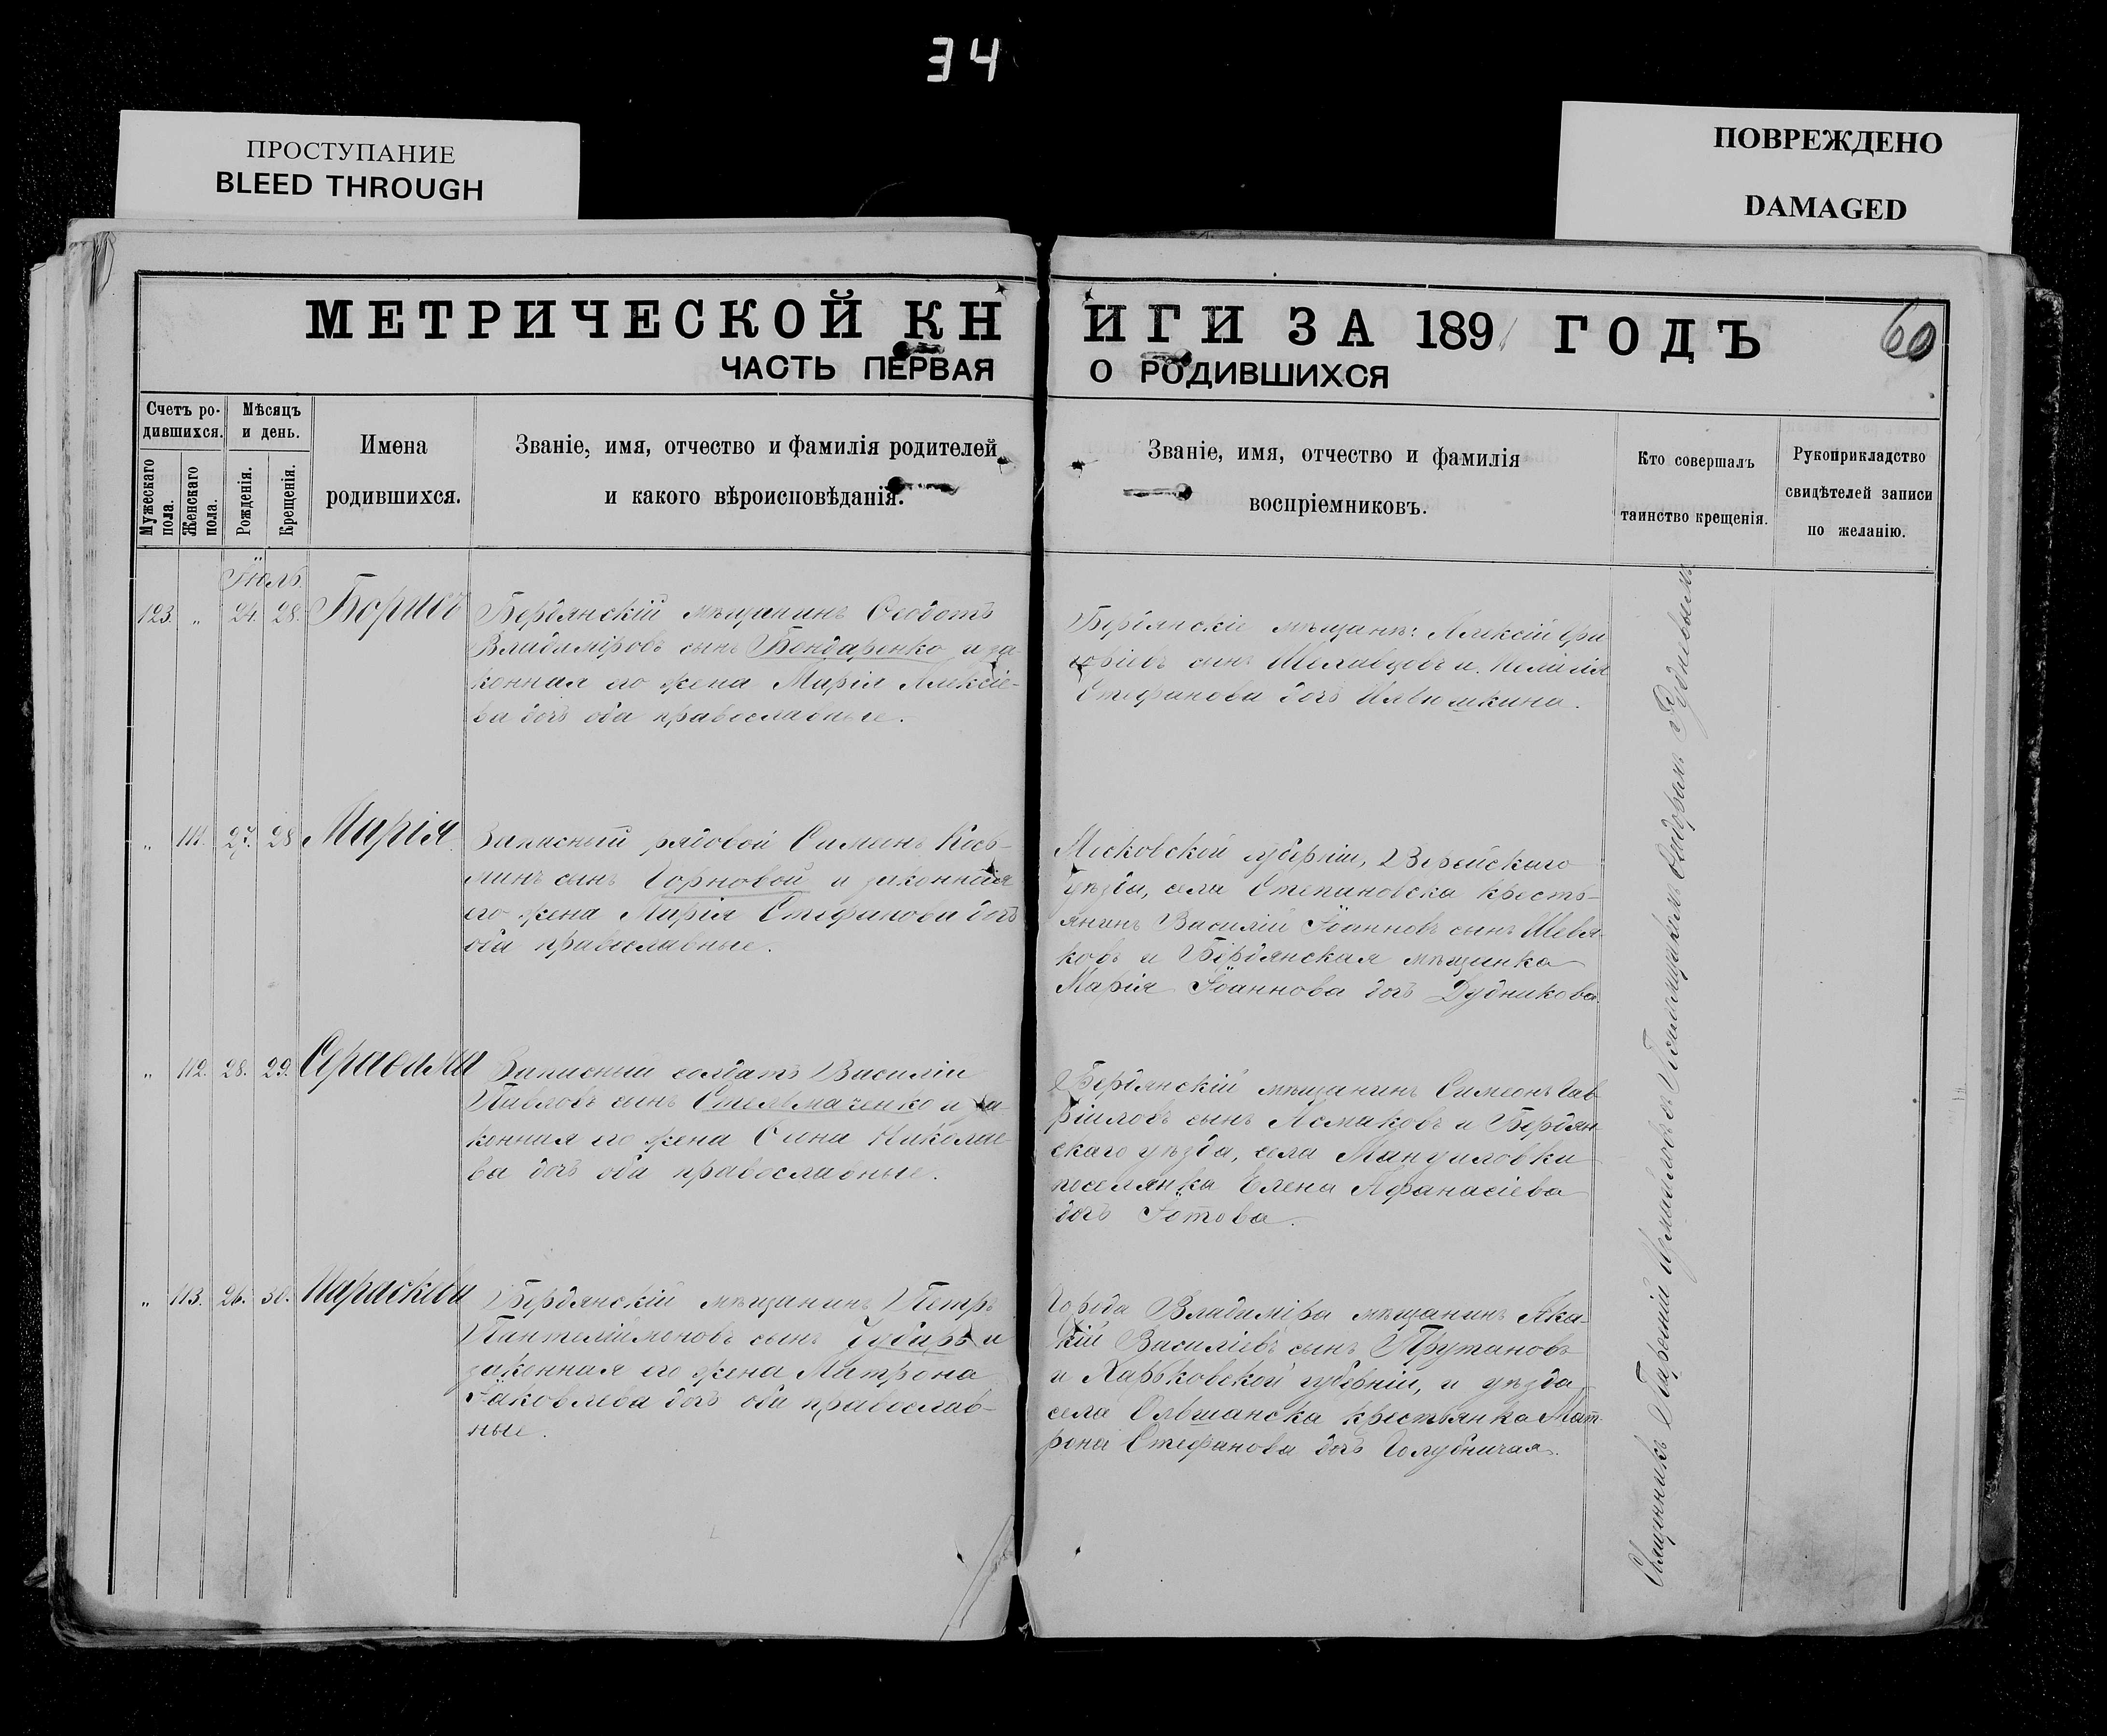 34
ПРОСТУПАНИЕ
BLEED THROUGH
ПОВРЕЖДЕНО
DAMAGED
МЕТРИЧЕСКОЙ КНИГИ ЗА 1891 ГОДЪ
60
ЧАСТЬ ПЕРВАЯ О РОДИВШИХСЯ
Счетъ ро-
дившихся.
Мѣсяцъ
и день.
Мужескаго
пола.
Женскаго
пола.
Рожденія.
Крещенія.
Имена
родившихся.
Званіе, имя, отчество и фамилія родителей
и какого вѣроисповѣданія.
Званіе, имя, отчество и фамилія
воспріемниковъ.
Кто совершалъ
таинство крещенія.
Рукоприкладство
свидѣтелей записи
по желанію.
Іюль
123. „ 24. 28. Борисъ
Бердянскій мѣщанинъ Ѳеодотъ
Владиміровъ сынъ Бондаренко и за-
конная его жена Марія Алексіе-
ва дочь оба православные.
Бердянскіе мѣщане: Алексій
сынъ и
Стефанова дочь
„ 111. 27. 28 Марія.
Запасный рядовой Симеонъ Кось-
минъ сынъ Горновой и законная
его жена Марія Стефанова дочь
оба православные.
Московской губерніи, Верейскаго
уѣзда, села Степановска кресть-
янинъ Василій Іоанновъ сынъ Шевя-
ковъ и Бердянская мѣщанка
Марія Іоаннова дочь Дудникова.
„ 112. 28. 29.
Запасный солдатъ Василій
Павловъ сынъ Стельмаченко и за-
конная его жена Николае-
ва дочь оба православные.
Бердянскій мѣщанинъ Симеонъ Гав-
ріиловъ сынъ Асмаковъ и Бердян-
скаго уѣзда, села Мануиловки
поселянка Елена Афанасіева
дочь Іотова.
„ 113. 26. 30. Параскева
Бердянскій мѣщанинъ Петръ
Пантелиймоновъ сынъ Губарь и
законная его жена Матрона
Іаковлева дочь оба православ-
ные.
Города Владиміра мѣщанинъ Ака-
кій Василіевъ сынъ Прутановъ
и Харьковской губерніи, и уѣзда
села Ольшанска крестьянка Мат-
рона Стефанова дочь Голубничая.
Священникъ съ Псаломщикомъ Ѳеодоромъ Рудневымъ